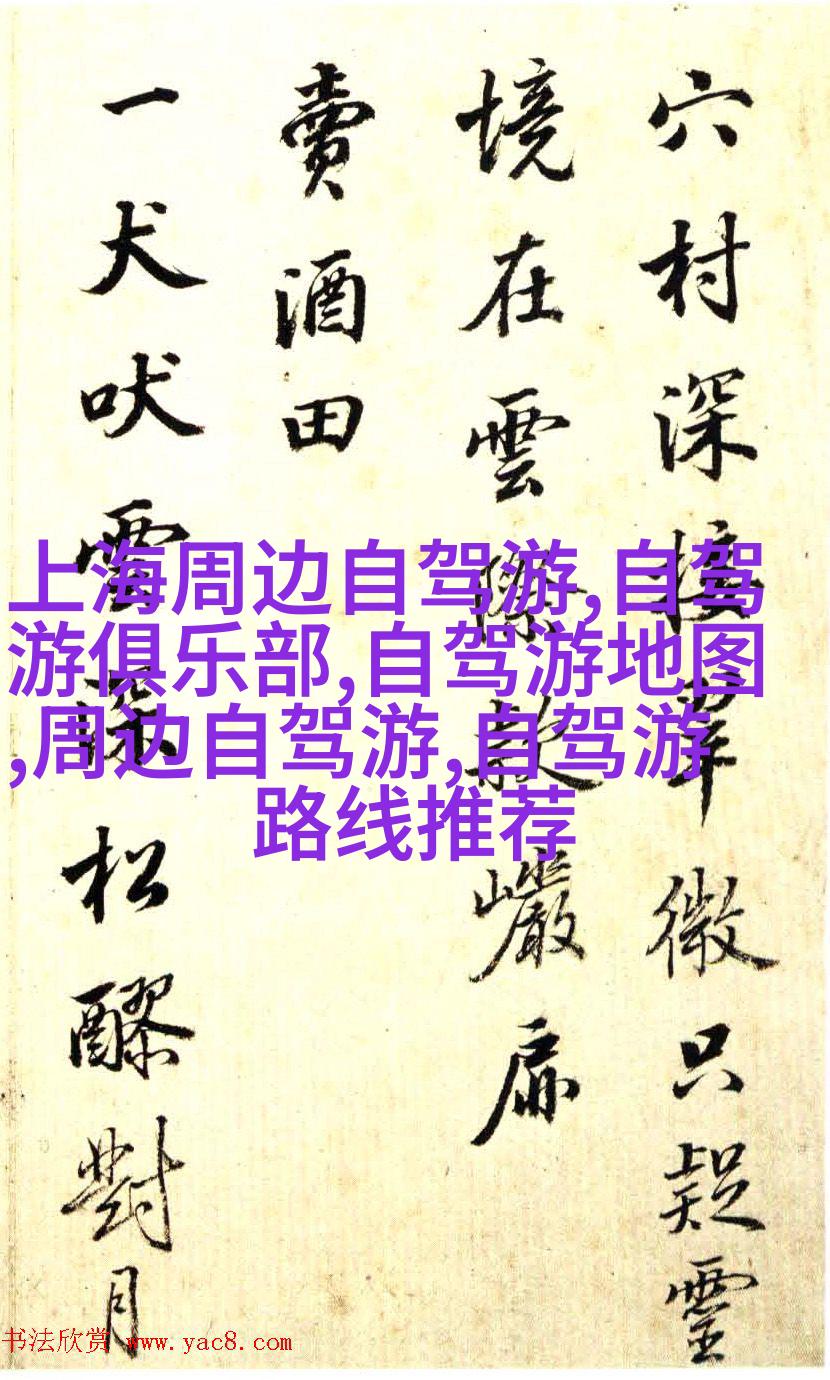 穴村深接翠微只疑靈
境在雲際款巖扉
賣酒田
一犬吠雲深松醪對月
上海周边自驾游,自驾
游俱乐部,自驾游地图
,周边自驾游,自驾游
路线推荐
书法欣赏 www.yac8.com